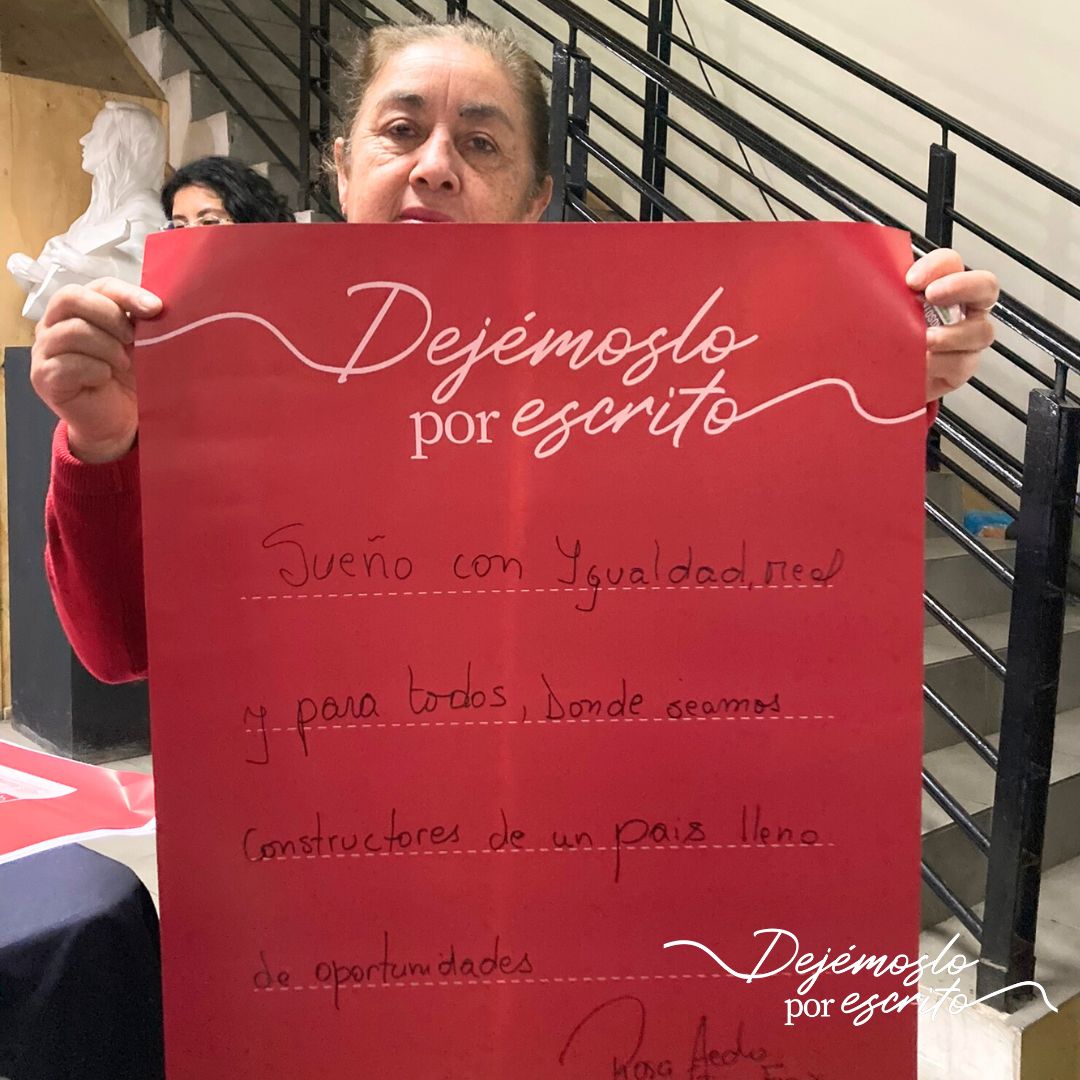 Dejémoslo
por escrito
Sueño con Igualdad, real
y para todos, Donde seamos
Constructores de un pais lleno
de oportunidades
Rosa Aedo
Dejémoslo
por escrito